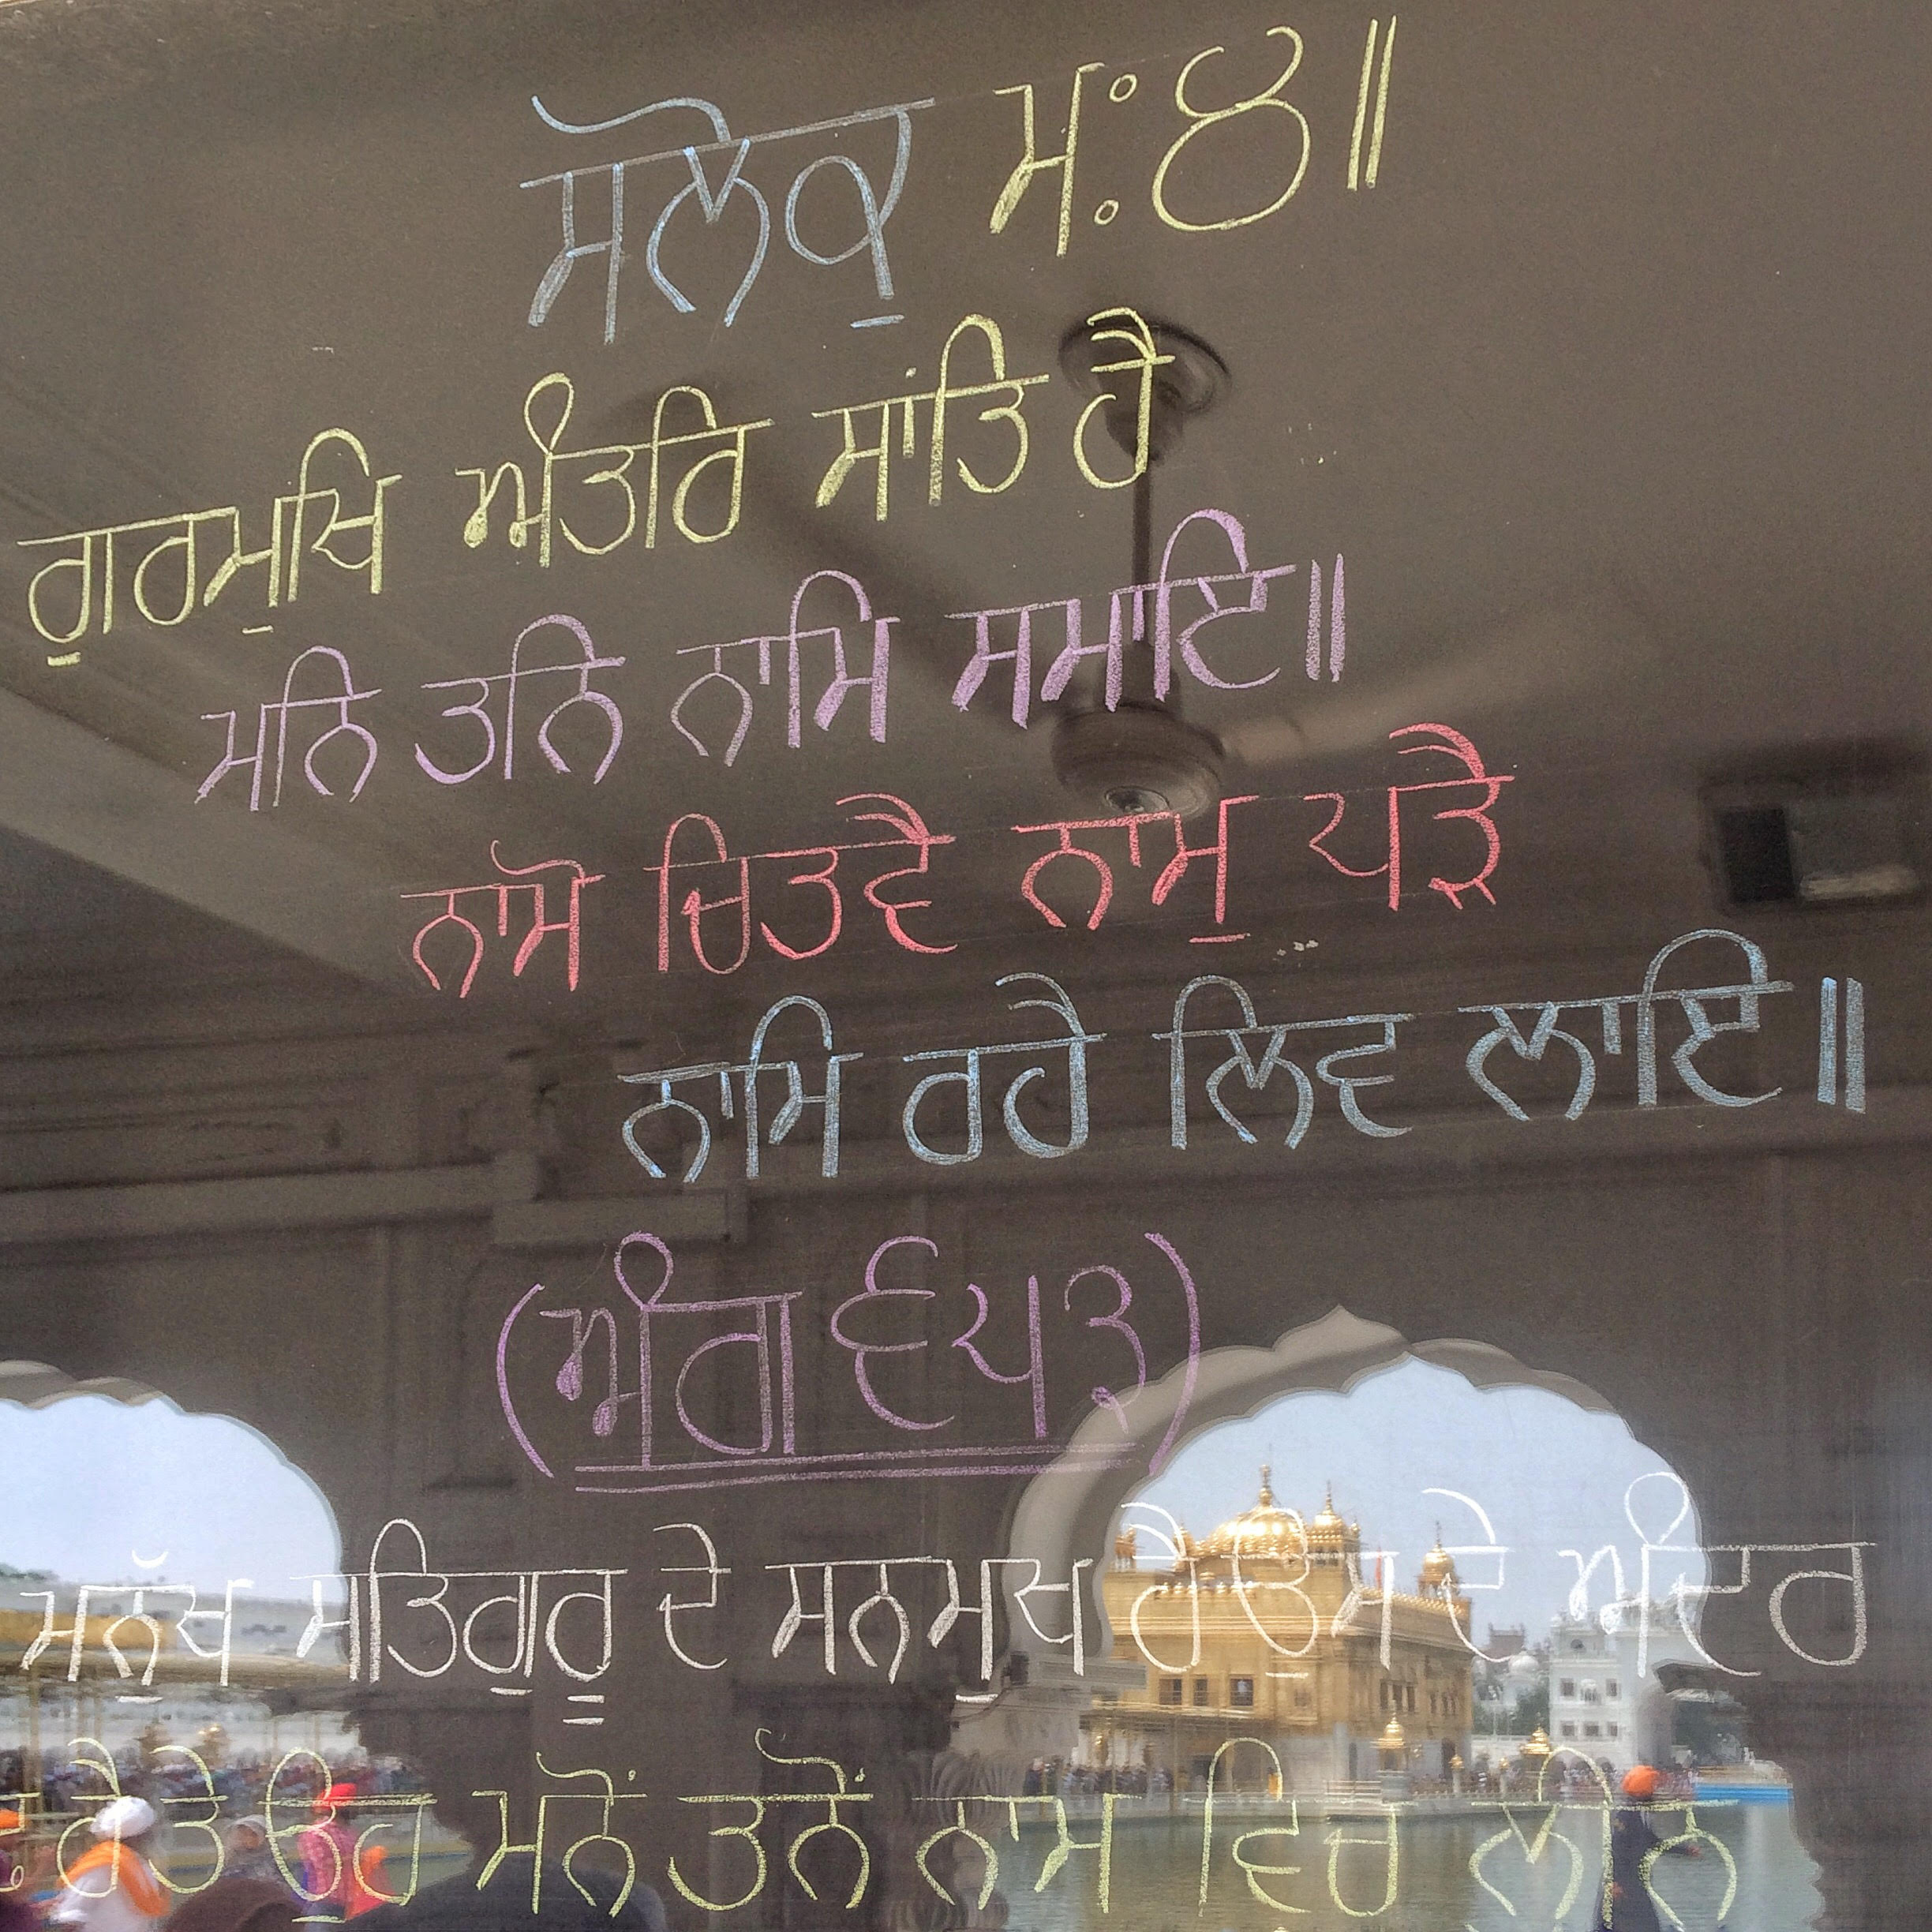 ਸਲੋਕੁ ਮਃ ੪॥
ਗੁਰਮੁਖਿ ਅੰਤਰਿ ਸਾਂਤਿ ਹੈ
ਮਨਿ ਤਨਿ ਨਾਮਿ ਸਮਾਇ॥
ਨਾਮੋ ਚਿਤਵੈ ਨਾਮੁ ਪੜੈ
ਨਾਮਿ ਰਹੈ ਲਿਵ ਲਾਇ॥
(ਅੰਗ ੬੫੩)
ਮਨੁੱਖ ਸਤਿਗੁਰੂ ਦੇ ਸਨਮੁਖ ਹੈ ਉਸ ਦੇ ਅੰਦਰ
ਹੈ ਤੇ ਉਹ ਮਨੋਂ ਤਨੋਂ ਨਾਮ ਵਿਚ ਲੀਨ